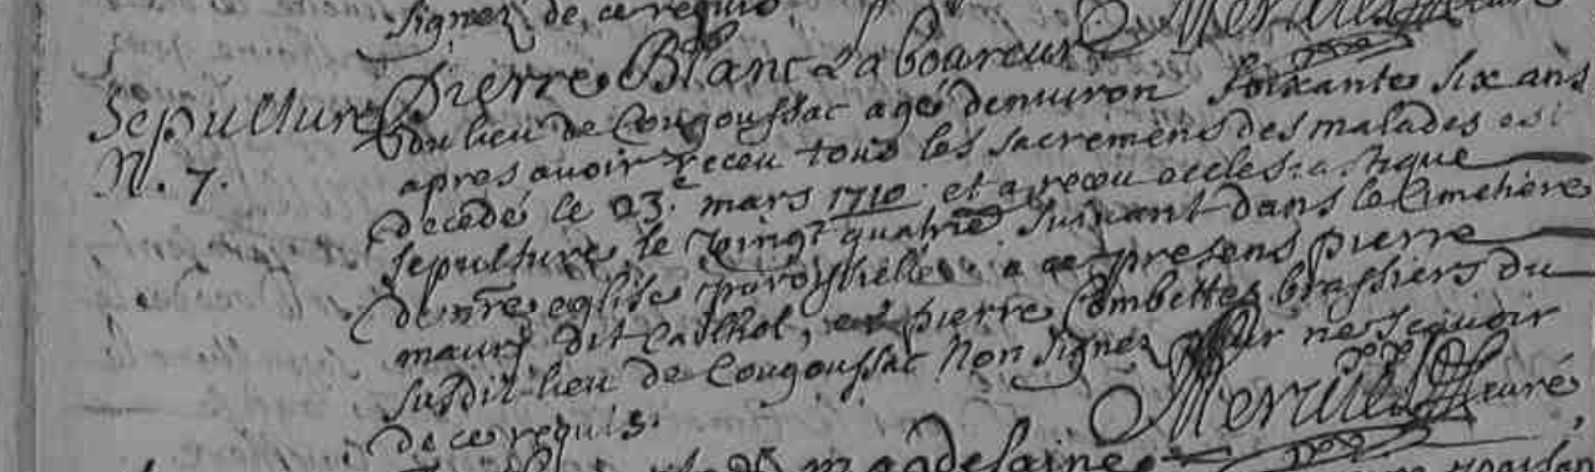 signez de ce requis
Sepulture
N. 7.
Pierre Blanc Laboureur
du lieu de Cougoussac agé denuiron soixante six ans
apres auoir receu tous les sacremens des malades est
decedé le 23.e mars 1710. et a receu ecclesiastique
sepulture le vingt quatrie suiuant dans le Cimetiere
de nre eglise paroissielle. a ce presens pierre
maury dit Cailhol, et pierre Combettes brassiers du
susdit lieu de Cougoussac Non signez pour ne sçauoir
de ce requis.
curé
magdelaine